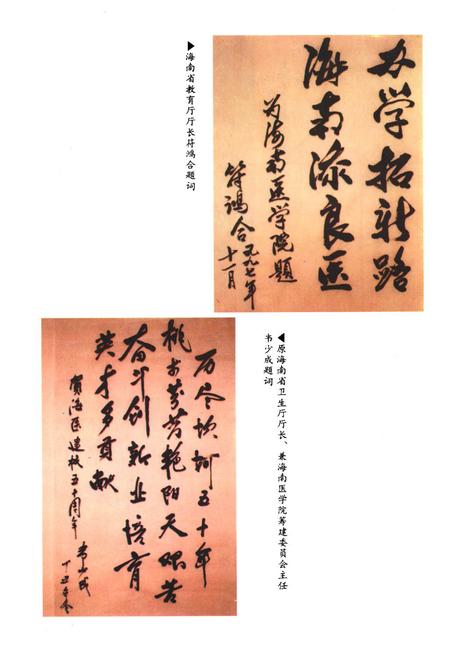 办学拓新路
海南添良医
为海南医学院题
符鸿合 一九九七年
十一月
▶海南省教育厅厅长符鸿合题词
历尽坎坷五十年
桃李芬芳艳阳天 艰苦
奋斗创新业 培育
英才多贡献
贺海医建校五十周年
韦少成
丁丑年冬
◀原海南省卫生厅厅长、兼海南医学院筹建委员会主任
韦少成题词